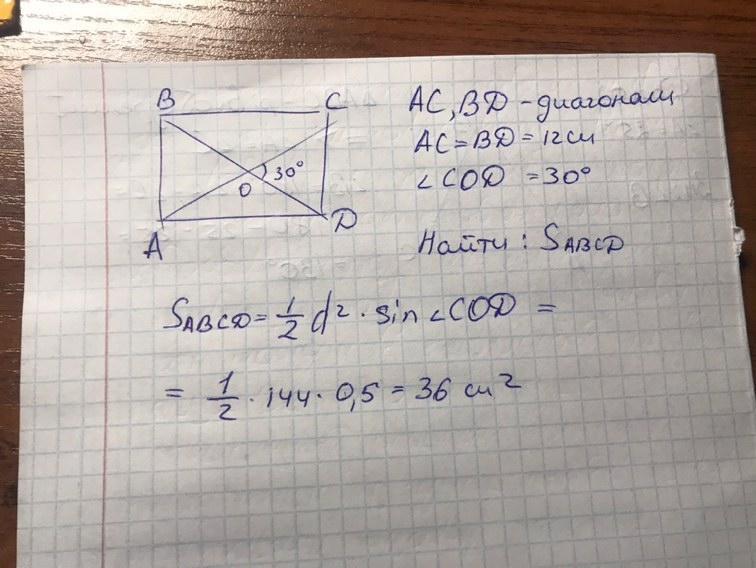 B C
AC, BD - диагонали
AC = BD = 12 см
∠COD = 30°
30°
O
A D
Найти: SABCD
SABCD = 1/2 d² · sin ∠COD =
= 1/2 · 144 · 0,5 = 36 см²